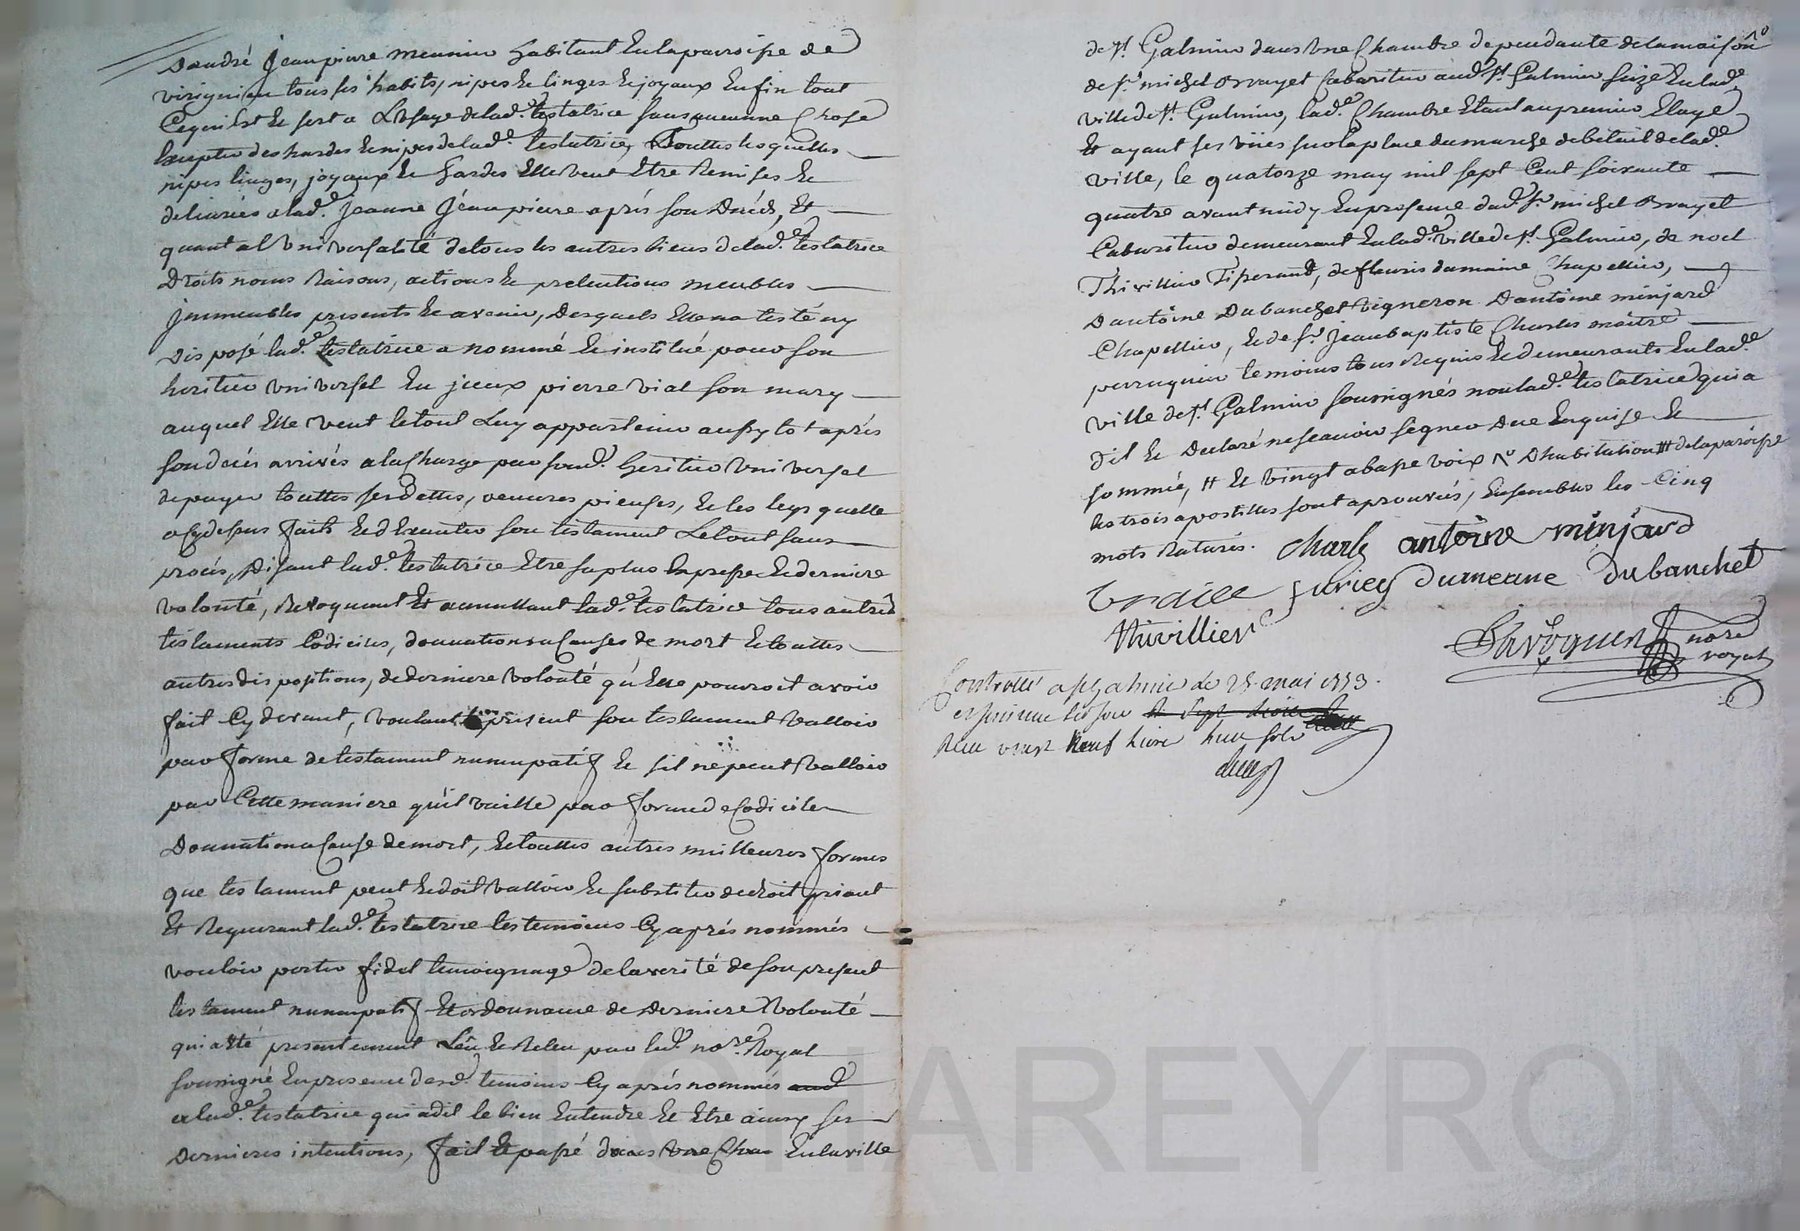 D'andré Jeanpierre meunier habitant en la parroisse de
virignieu tous ses habits, nipes et linges et joyaux enfin tout
ce qui est et sert a l'usage de lad.e testatrice sans aucunne chose
excepter des hardes et nipes de lad.e testatrice, touttes lesquelles
nipes linges, joyaux et hardes elle veut etre remises et
delivrées a lad.e Jeanne Jeanpierre aprés son décés, et
quant a l'universalité de tous les autres biens de lad.e testatrice
droits noms raisons, actions et pretentions meubles
immeubles presents et avenir, desquels elle na testé ny
disposé lad.e testatrice a nommé et institué pour son
heritier universel en jceux pierre vial son mary
auquel elle veut le tout luy appartenir aussytot aprés
son decés arrivés a la charge par sond. heritier universel
de payer touttes ses dettes, oeuvres pieuses, et les legs quelle
a cy dessus faits et d'executer son testament le tout sans
procés, disant lad.e testatrice etre sa plus expresse et derniere
volonté, revoquant et annullant lad.e testatrice tous autres
testaments codiciles, donnations a causes de mort et touttes
autres dispositions, de derniere volonté qu'elle pourroit avoir
fait cy devant, voulant le present son testament valloir
par forme de testament nuncupatif et s'il ne peut valloir
par cette maniere qu'il vaille par forme de codicile
donnation a cause de mort, et touttes autres meilleures formes
que testament peut et doit valloir et subsister de droit priant
et requerant lad.e testatrice les temoins cy aprés nommés
vouloir porter fidel temoignage de la verité de son present
testament nuncupatif et ordonnance de derniere volonté
qui a été presentement leu et releu par led. no.re Royal
soussigné en presence desd. temoins cy aprés nommés aud
a lad.e testatrice qui a dit le bien entendre et etre ainsy ses
dernieres intentions, fait et passé dans une cham en la ville
de s.t Galmier dans une chambre dependante de la maison
de s.r michel Brayet cabaretier aud. s.t Galmier seize en lad.e
ville de s.t Galmier, lad.e chambre etant au premier etage
et ayant ses vües sur la place du marché de bétail de lad.e
ville, le quatorze may mil sept cent soixante
quatre avant midy en presence dud. s.r michel Brayet
cabaretier demeurant en lad.e ville de s.t Galmier, de noel
Thivillier Tisserand, de fleuris dumaine chapellier,
d'antoine Dubanchet vigneron d'antoine minjard
chapellier, et de s.r Jean baptiste Charles maitre
perruquier temoins tous requis et demeurants en lad.e
ville de s.t Galmier soussignés non lad.e testatrice qui a
dit et declaré ne scavoir signer de ce enquise et
sommée, # et vingt a basse voix d'habitation # de la paroisse
les trois apostilles sont aprouvées, ensembles les cinq
mots raturés. charle antoine minjard
Braiee dumeane dubanchet
thivillier
nore
royal
Controllé a st galmier le 25 mai
Receu vingt neuf livre huit sols